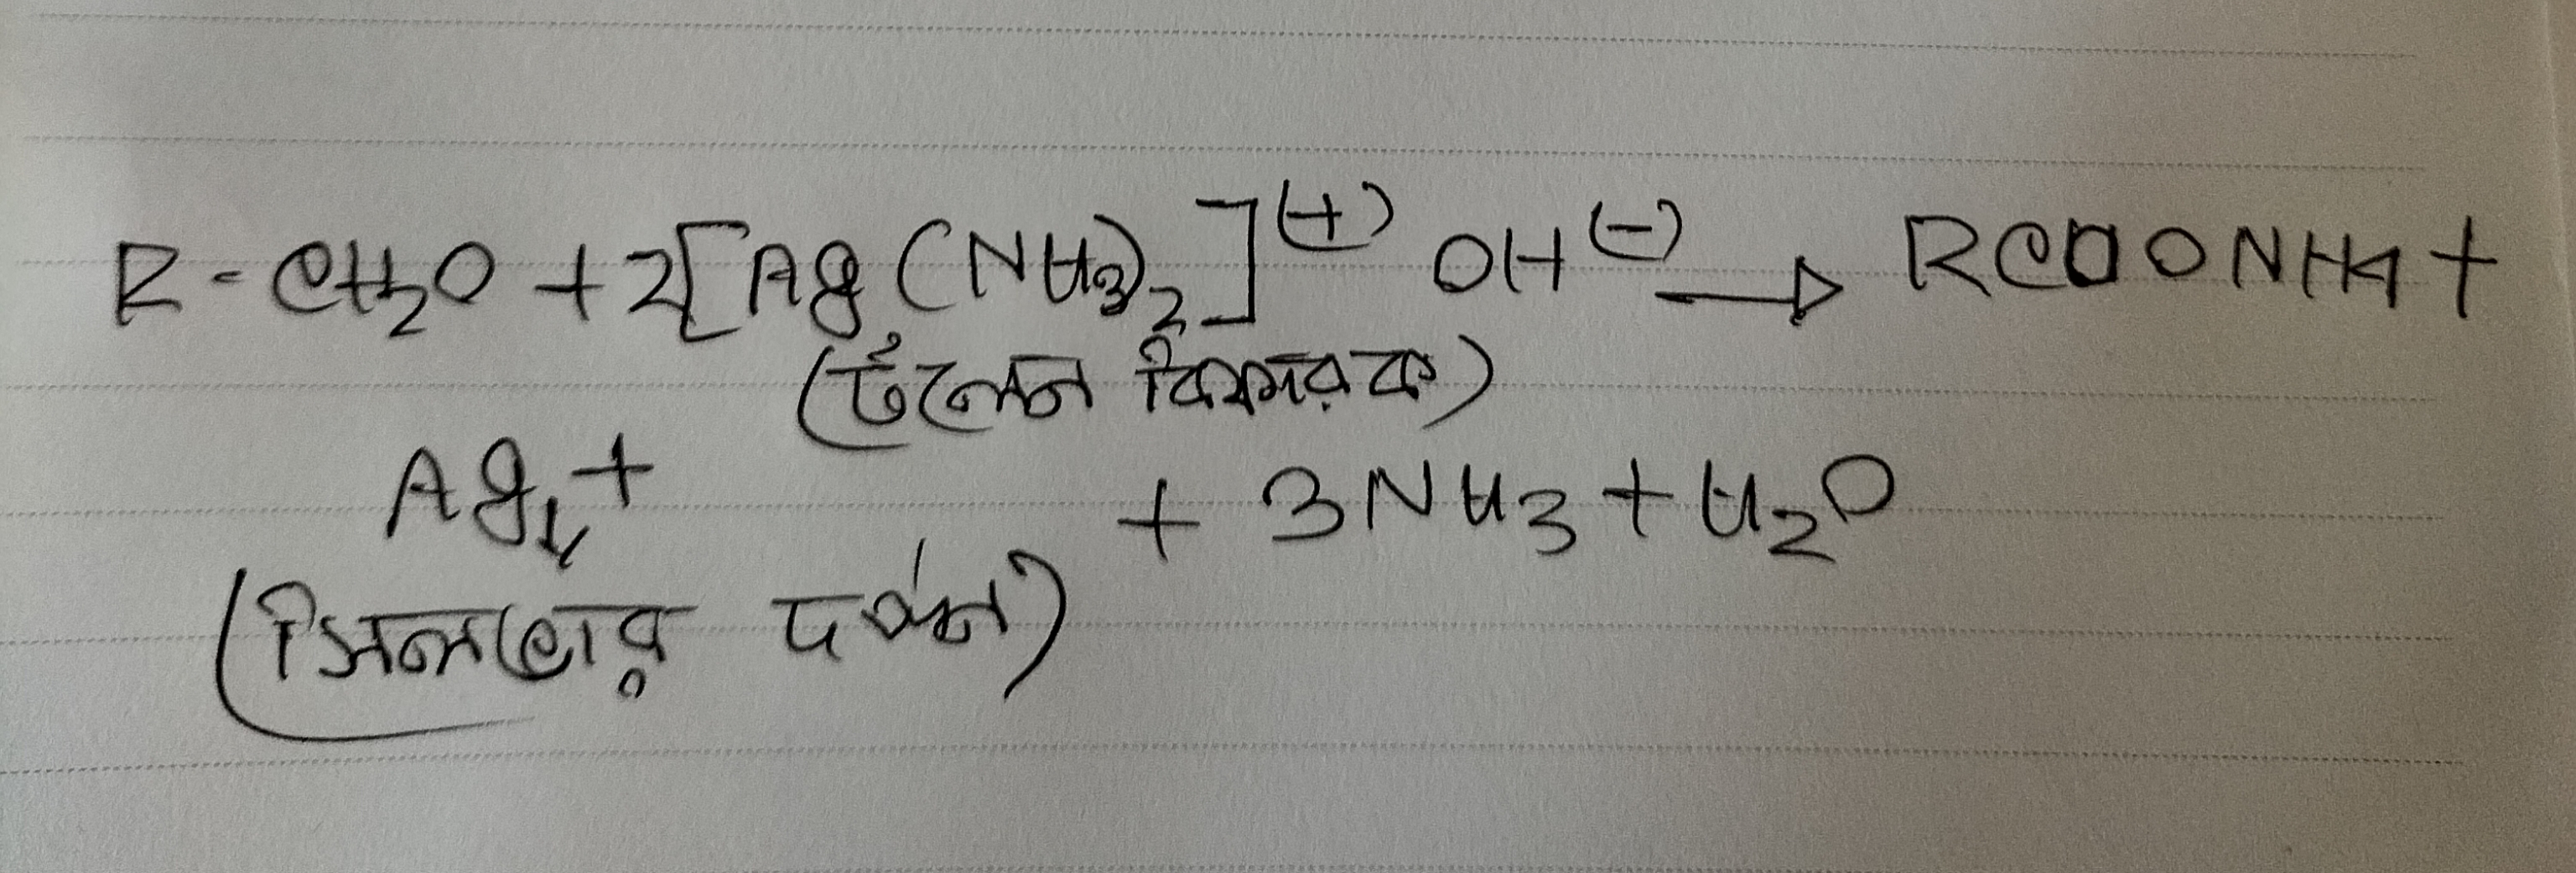 R-CH₂O + 2[Ag(NH₃)₂]⁽⁺⁾ OH⁽⁻⁾ → RCOONH4 +
(টলেন বিকারক)
Ag↓ + + 3NH₃ + H₂O
(সিলভার দর্পন)